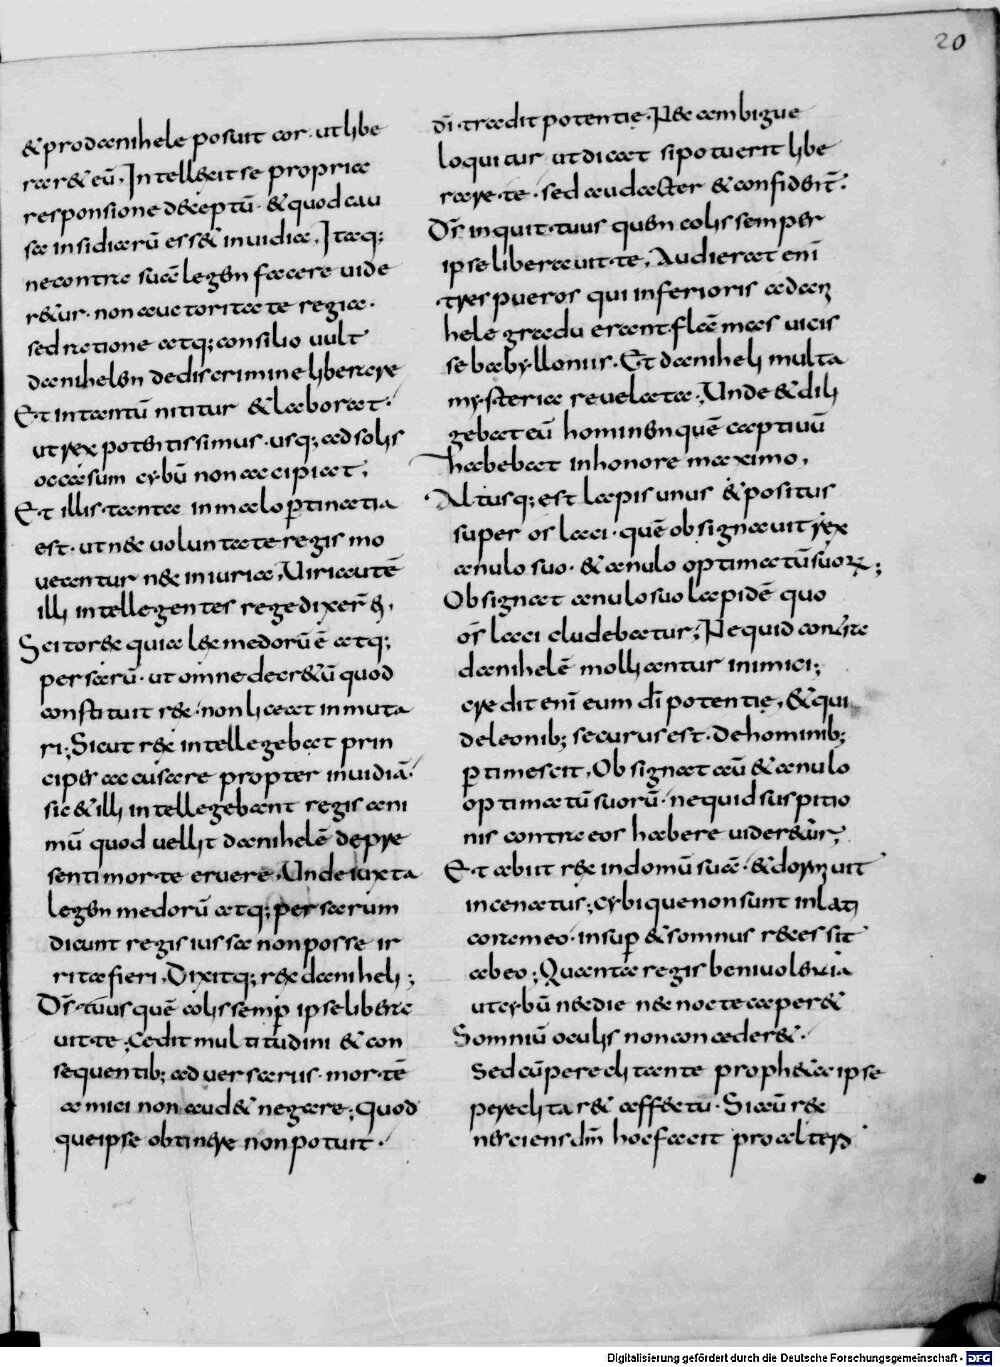 20
& prodanihele posuit cor· ut libe
rar& eũ· Intellexit se propria
responsione deceptũ· & quod cau
sa insidiarũ ess& inuidia· Itaq;
ne contra suã legem facere uide
r&ur· non auctoritate regia·
sed ratione atq; consilio uult
danihelem de discrimine liberare
Et in tantũ nititur & laborat·
ut rex potentissimus· usq; ad solis
occasum cybũ non accipiat·
Et illis tanta in malo ptinatia
est· ut n& uoluntate regis mo
ueantur n& iniuria· Uiri autē
illi intellegentes rege dixer̃ ei·
Scitor&x quia lex medorũ ē atq;
persarũ· ut omne decr&ũ quod
constituit rex· non liceat inmuta
ri; Sicut rex intellegebat prin
cipes accusare propter inuidiã·
sic & illi intellegebant regis ani
mũ quod uellit danihelē depre
senti mor·te eruere· Unde iuxta
legem medorũ atq; persarum
dicunt regis iussa non posse ir
rita fieri· Dixitq; rex daniheli;
Dr̄· tuus quē colis semp ipse libera
uit·te; Cedit multitudini & con
sequentib; aduersarus· mor·tē
amici non aud& negare; Quod
queipse obtinere non potuit·
dī· tradit potentię· N& ambigue
loquitur ut dicat si potuerit libe
rare·te· sed audacter & confident̃·
Dr̄ inquit· tuus quem colis semper
ipse liberauit·te· Audierat enī
tres pueros qui inferioris adan
hele gradu erant· flãmas uicis
se babyllonius· Et daniheli multa
mysteria reuelata· Unde & dili
gebat eũ hominemquē captiuũ
habebat in honore maximo·
Altusq; est lapis unus & positus
super os laci· quē obsignauit rex
anulo suo· & anulo optimatũ suorꝝ;
Obsignat anulo suo lapidē quo
os laci cludebatur; Nequid contra
danihelē moliantur inimici;
credit enī eum dī potentię· & qui
deleonib; securus est· dehominib;
ptimescit· Obsignat aũ & anulo
optimatũ suorũ· nequid suspitio
nis contra eos habere uider&ur;
Et abiit rex in domũ suã· & dormuit
incenatus; Cybi que non sunt inlati
coram eo· insup & somnus recessit
abeo; Quanta regis beniuolentia
ut cybũ n& die n& nocte caper&
Somniũ oculis non conceder&·
Sed cũ pereclitante proph&a ipse
pereclitar& affectu· Si aũ rex
nesciens dm̄ hoc facit pro alterꝰ
Digitalisierung gefördert durch die Deutsche Forschungsgemeinschaft - DFG